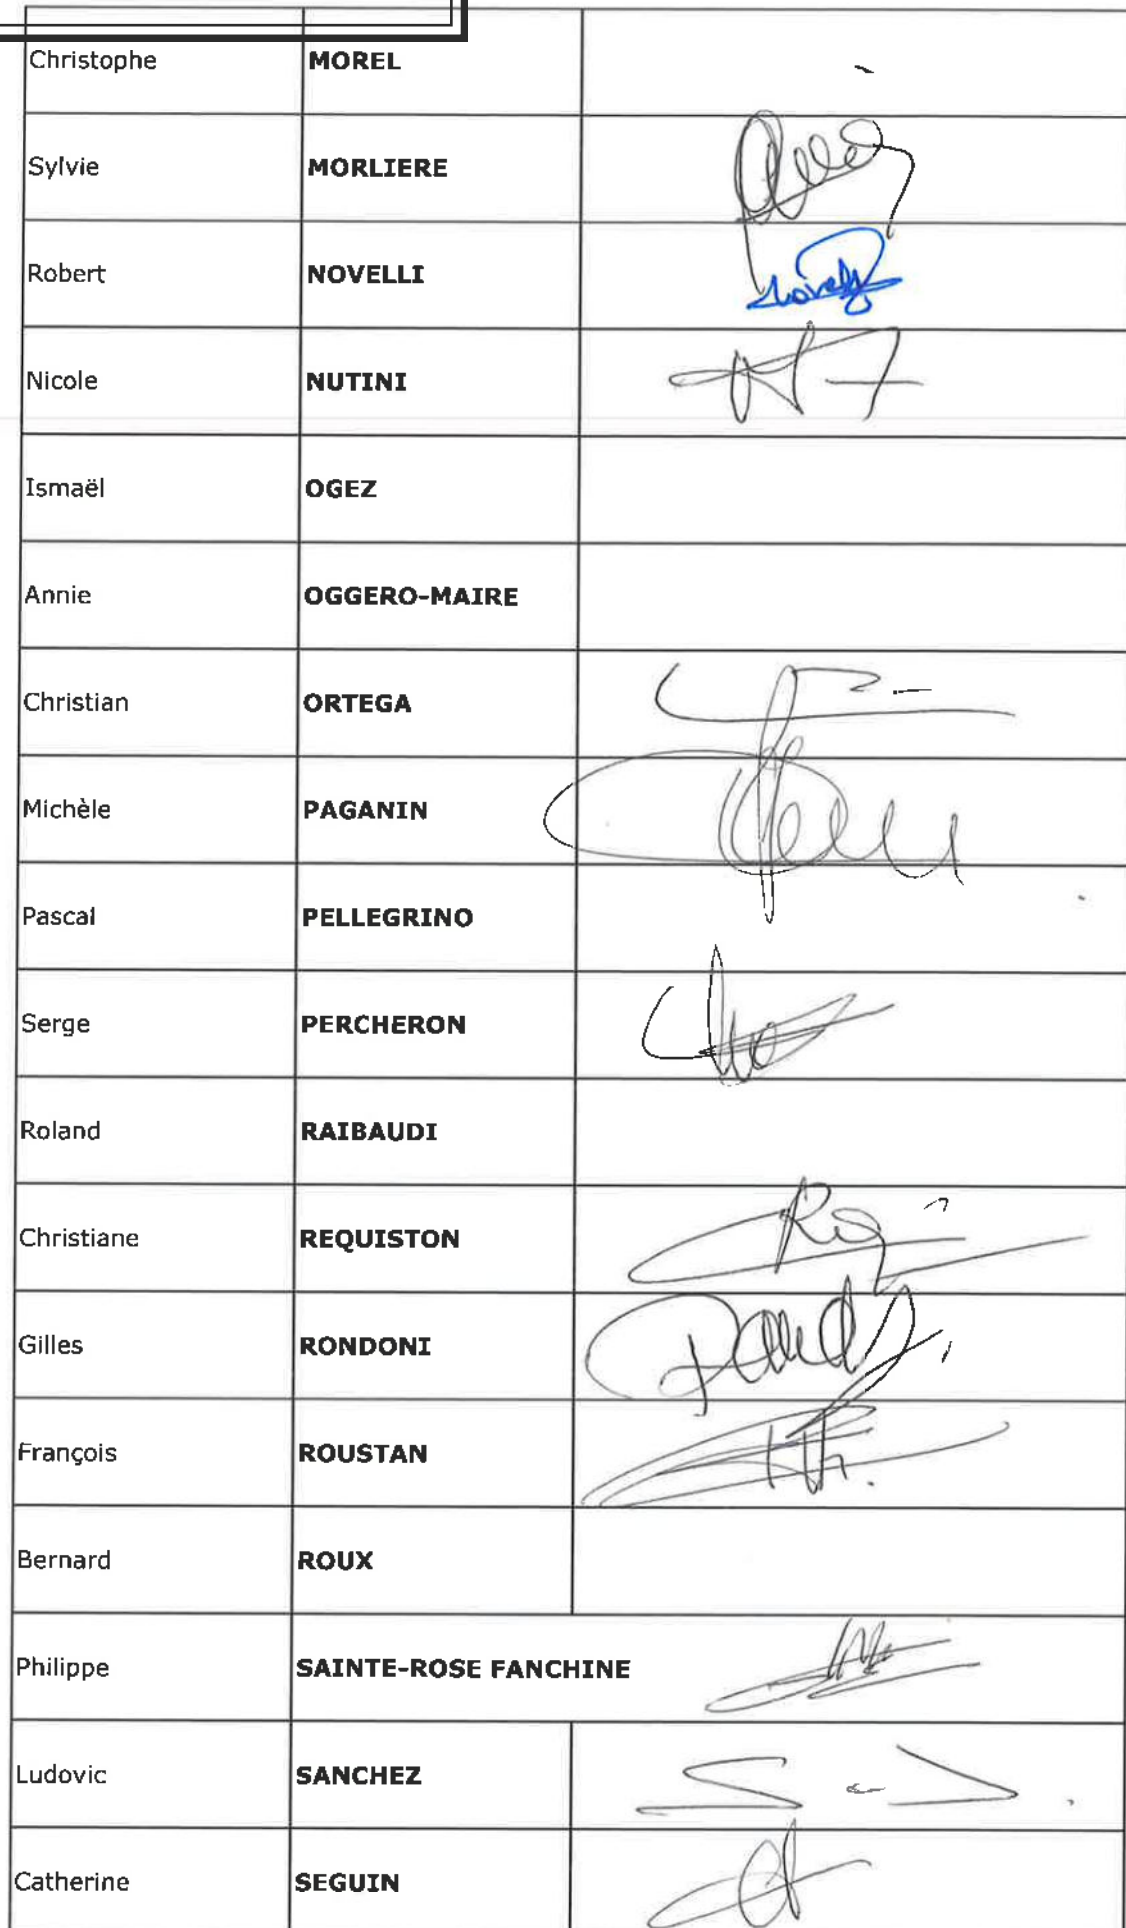 Christophe MOREL
Sylvie MORLIERE
Robert NOVELLI
Nicole NUTINI
Ismaël OGEZ
Annie OGGERO-MAIRE
Christian ORTEGA
Michèle PAGANIN
Pascal PELLEGRINO
Serge PERCHERON
Roland RAIBAUDI
Christiane REQUISTON
Gilles RONDONI
François ROUSTAN
Bernard ROUX
Philippe SAINTE-ROSE FANCHINE
Ludovic SANCHEZ
Catherine SEGUIN